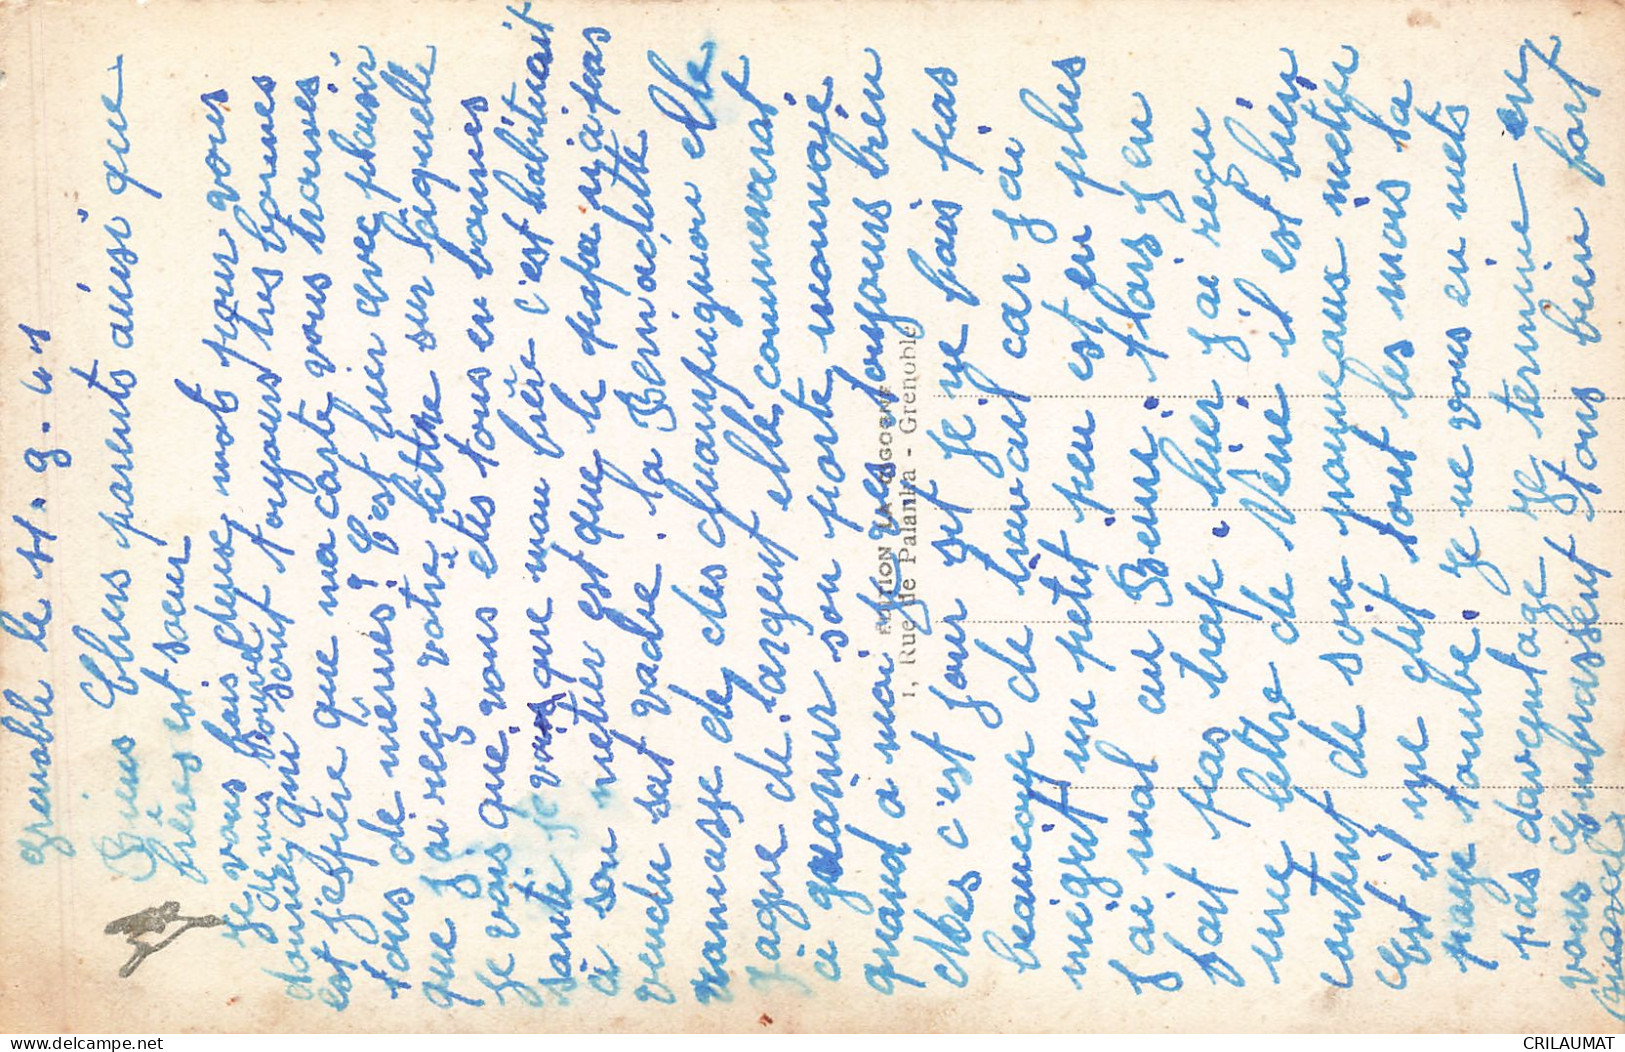 Grenoble le 11.9.41
Chers parents ainsi que
frères et soeur
Je vous fais deux mots pour vous
donner de mes nouvelles
qui sont toujours très bonnes
et j'espère que ma carte vous trouves
tous de mêmes! C'est hier avec plaisir
que J'ai reçu votre lettre sur laquelle
Je vois que vous etes tous en bonnes
santé Je vois que mon frère c'est habituait
a son metier est que le
vendu sat vache. la Bernadette
ramasse de des champignon elle
gagne de l'argent elle commencerat
a garnir son porte monnaie
quand à moi mes toujours bien
Mes c'est jour set Je ne fais pas
beaucoup de travail car J'ai
maigrit un petit peu est en plus
J'ai mal au Alors J'en
fait pas trop. hier J'ai reçu
une lettre de René il est bien
content de son nouveaus metier
est il me dit tout les mois la
paye tombe. Je ne vous en mets
pas daventage Je termine en
vous Embrassent tous bien fort
Marcel
EDITION LA CIGOGNE
1, Rue de Palanka - Grenoble
delcampe.net
CRILAUMAT